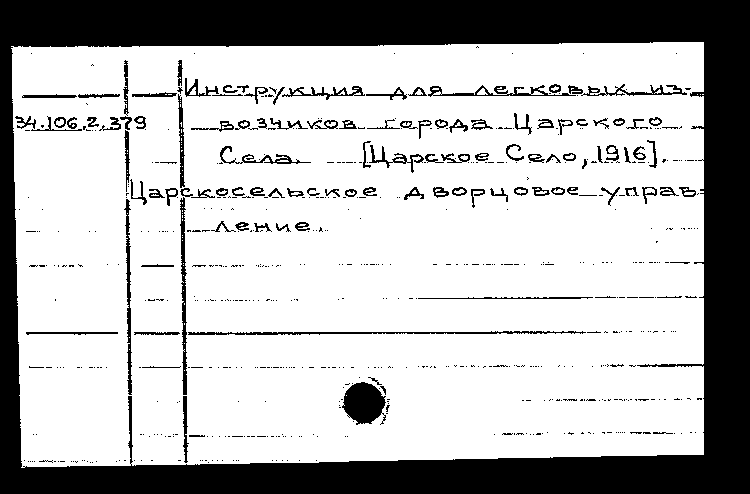 Инструкция для легковых из-
34.106.2.379 возчиков города Царского
Села. [Царское Село, 1916].
Царскосельское дворцовое управ-
ление.